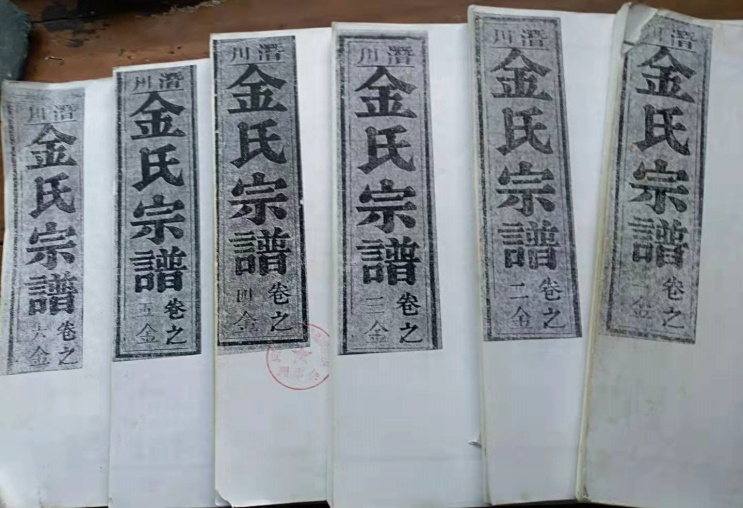 潛川
金氏宗譜
卷之
一金
潛川
金氏宗譜
卷之
二金
潛川
金氏宗譜
卷之
三金
潛川
金氏宗譜
卷之
四金
潛川
金氏宗譜
卷之
五金
潛川
金氏宗譜
卷之
六金